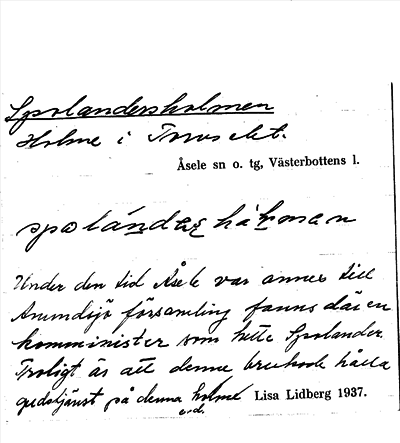 Spolandersholmen
Holme i
Åsele sn o. tg, Västerbottens l.
spolándeʂ hà̱l̥man
Under den tid Åsele var annex till
Anundsjö församling fanns där en
komminister som hette Spolander.
Troligt är att denne brukade hålla
gudstjänst på denna holme
e.d.
Lisa Lidberg 1937.